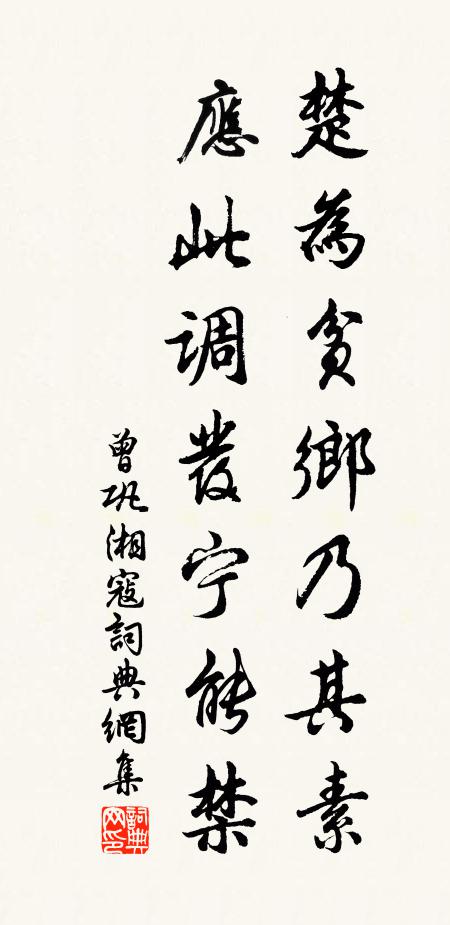 楚為貧鄉乃其素
應此調發宁能禁
曾巩湘寇詞典網集
詞典网印